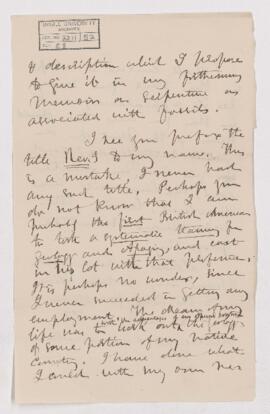 McGILL UNIVERSITY
ARCHIVES
ACC. NO. 2211 / 52
REF. 
& description which I propose
to give it in my forthcoming
Memoir on Serpentine as
associated with fossils.
I see you prefix the
title Revd to my name. This
is a mistake, I never had
any such title. Perhaps you
do not know that I am
probably the first British American
to take a systematic training for
Geology and and cast
in his lot with that profession.
It is perhaps no wonder, since
I never succeeded in getting any
employment. The dream of my
life was to work out the geology
of some portion of my native
country. I have done what
I could with my own